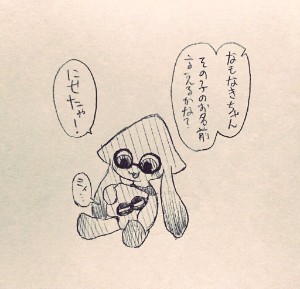 なもなきちゃん
その子のお名前
言えるかな?
にせたゃ!
ミ"メ...